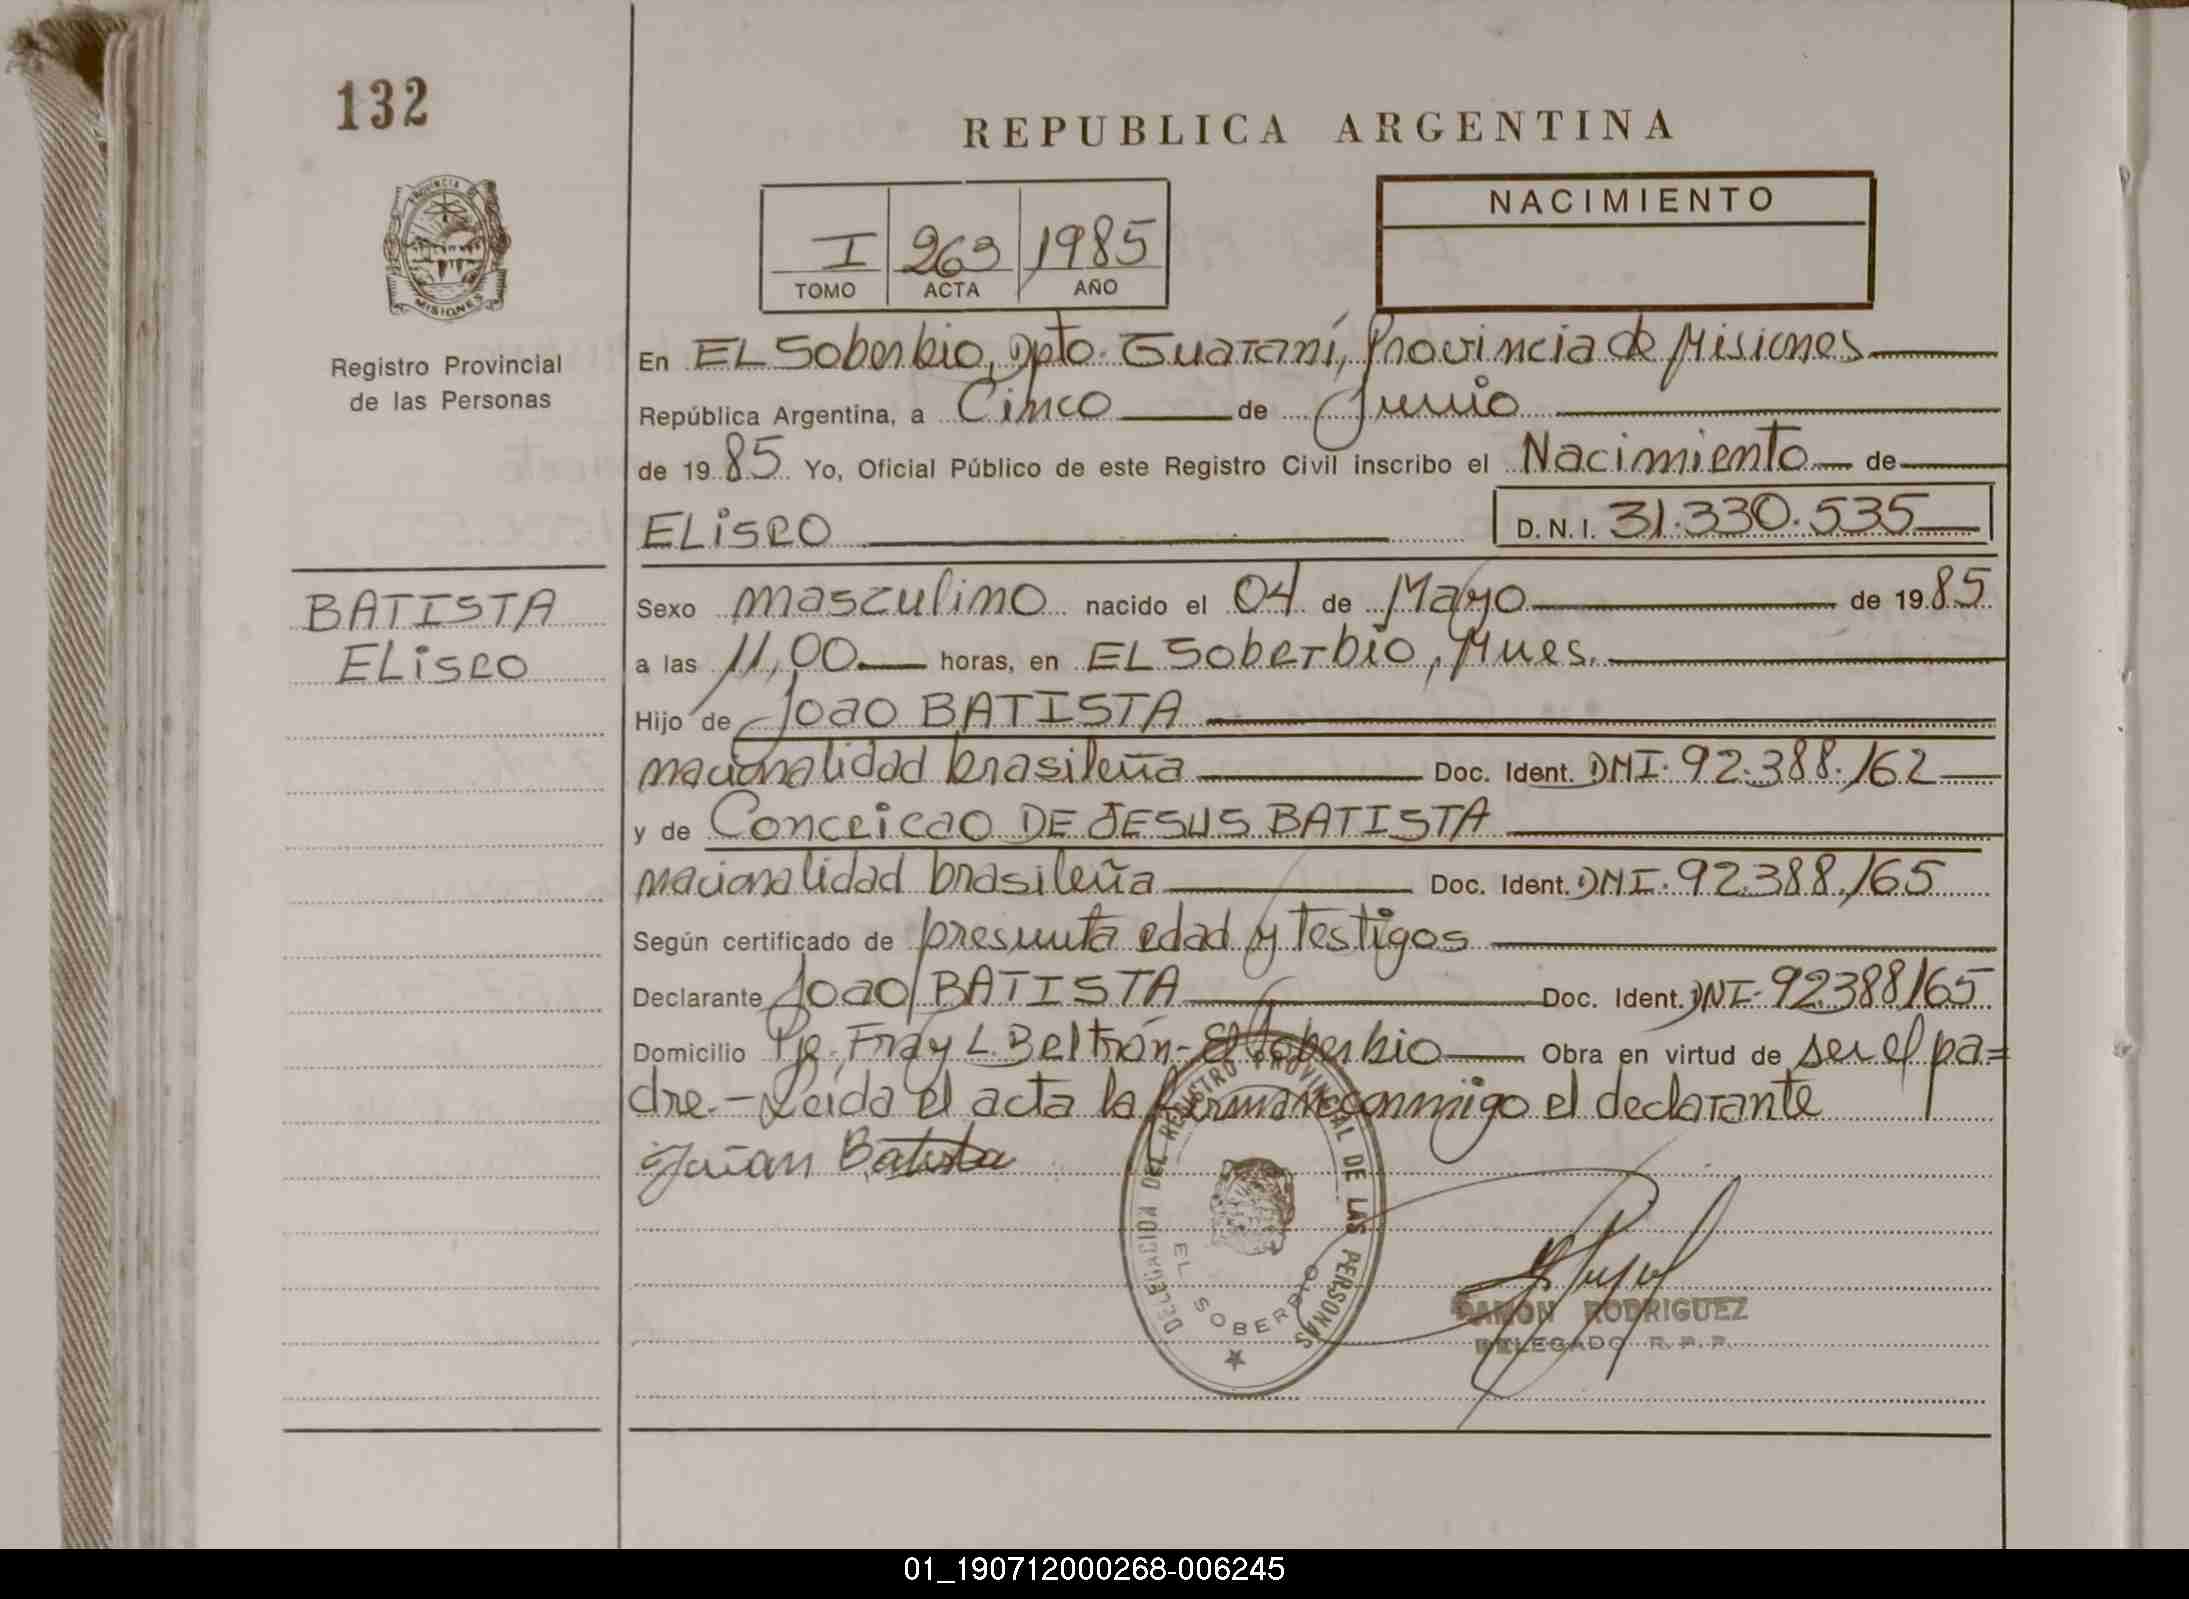 132
REPUBLICA ARGENTINA
PROVINCIA DE
MISIONES
Registro Provincial
de las Personas
I 263 1985
TOMO ACTA AÑO
NACIMIENTO
En EL Soberbio, Dpto. Guaraní, Provincia de Misiones
República Argentina, a Cinco de Junio
de 1985 Yo, Oficial Público de este Registro Civil inscribo el Nacimiento de
ELiseo
D.N.I. 31.330.535
BATISTA
ELiseo
Sexo masculino nacido el 04 de Mayo de 1985
a las 11,00 horas, en EL Soberbio, Mnes.
Hijo de Joao BATISTA
nacionalidad brasileña Doc. Ident. DNI. 92.388.162
y de Conceicao DE JESUS BATISTA
nacionalidad brasileña Doc. Ident. DNI. 92.388.165
Según certificado de presunta edad y testigos
Declarante Joao BATISTA Doc. Ident. DNI- 92388165
Domicilio Pje. Fray L. Beltrán- El Soberbio Obra en virtud de ser el pa=
dre.- Leida el acta la firma conmigo el declarante
Batista
DELEGACION DEL REGISTRO PROVINCIAL DE LAS PERSONAS
EL SOBERBIO
RAMON RODRIGUEZ
DELEGADO R.P.P.
01_190712000268-006245